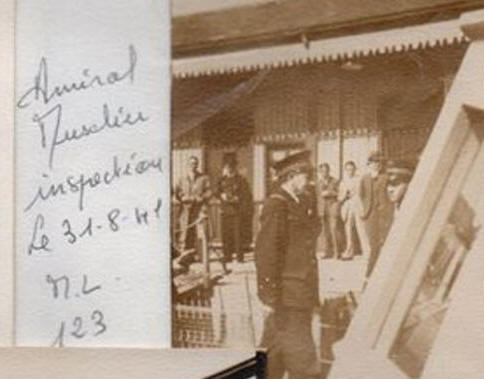 Amiral
Muselier
inspection
Le 31-8-41
M.L.
123